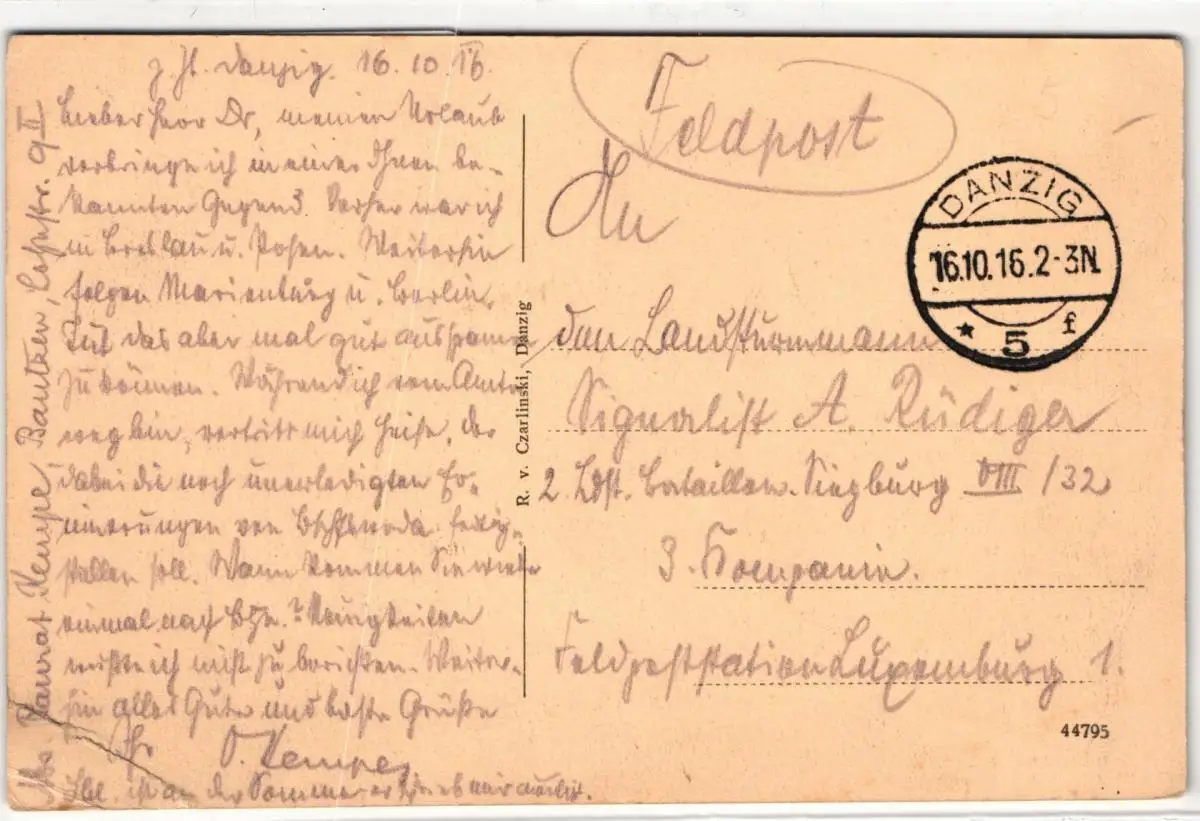 z. Zt. Danzig. 16. 10. 16.
Lieber Herr Dr, meinen Urlaub
verbringe ich in einer Ihnen be-
kannten Gegend. Vorher war ich
in Breslau u. Posen. Weiterhin
folgen Marienburg u. Berlin.
Tut das aber mal gut ausspannen
zu können. Während ich vom Amte
weg bin, vertritt mich Heise, der
dabei die noch unerledigten
von fertig-
stellen soll. Wann kommen Sie wieder
einmal nach Neuigkeiten
wüßte ich nicht zu berichten. Weiter-
hin alles Gute und beste Grüße
Ihr O. Kempe,
ist an der
Baurat Kempe Bautzen, 9 II
Feldpost
An
den Landsturmmann
Signalist A. Rüdiger
2. Ldst. Bataillon Siegburg VIII /32
3. Kompanie.
Feldpoststation Luxemburg 1.
DANZIG
16.10.16.2-3N.
* 5 f
R. v. Czarlinski, Danzig
44795